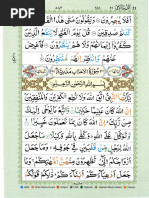 أَفَلَا يُبْصِرُونَ وَيَقُولُونَ مَتٰى هٰذَا الْفَتْحُ
اِنْ كُنْتُمْ صٰدِقِيْنَ قُلْ يَوْمَ الْفَتْحِ لَا يَنْفَعُ الَّذِيْنَ
كَفَرُوْٓا اِيْمَانُهُمْ وَلَا هُمْ يُنْظَرُوْنَ فَاَعْرِضْ
عَنْهُمْ وَانْتَظِرْ اِنَّهُمْ مُّنْتَظِرُوْنَ
سُوْرَةُ الْاَحْزَابِ مَدَنِيَّةٌ
بِسْمِ اللّٰهِ الرَّحْمٰنِ الرَّحِيْمِ
يٰٓاَيُّهَا النَّبِيُّ اتَّقِ اللّٰهَ وَلَا تُطِعِ الْكٰفِرِيْنَ وَالْمُنٰفِقِيْنَ
اِنَّ اللّٰهَ كَانَ عَلِيْمًا حَكِيْمًا وَّاتَّبِعْ مَا يُوْحٰٓى اِلَيْكَ
مِنْ رَّبِّكَ اِنَّ اللّٰهَ كَانَ بِمَا تَعْمَلُوْنَ خَبِيْرًا وَّتَوَكَّلْ
عَلَى اللّٰهِ وَكَفٰى بِاللّٰهِ وَكِيْلًا مَا جَعَلَ اللّٰهُ لِرَجُلٍ
مِّنْ قَلْبَيْنِ فِيْ جَوْفِهٖ وَمَا جَعَلَ اَزْوَاجَكُمُ الّٰٓئِيْ
تُظٰهِرُوْنَ مِنْهُنَّ اُمَّهٰتِكُمْ وَمَا
جَعَلَ اَدْعِيَآءَكُمْ اَبْنَآءَكُمْ ذٰلِكُمْ قَوْلُكُمْ